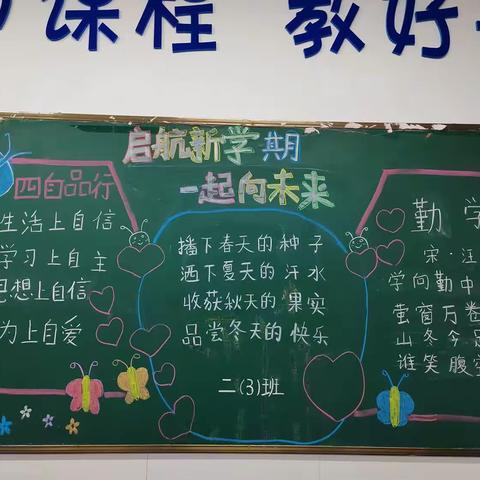 课程 教好
启航新学期
一起向未来
四自品行
生活上自信
学习上自主
思想上自信
为上自爱
播下春天的种子
洒下夏天的汗水
收获秋天的果实
品尝冬天的快乐
二(3)班
勤学
宋·汪
学向勤中
萤窗万卷
山冬今足
谁笑腹空